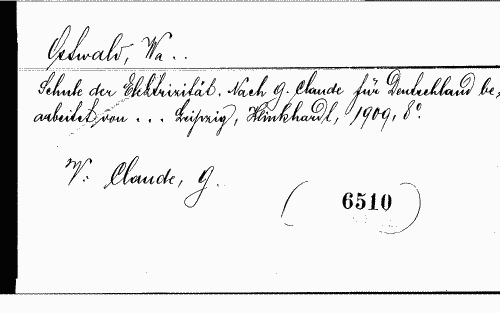 Ostwald, Wa . .
Schule der Elektrizität. Nach G. Claude für Deutschland be,
arbeitet von . . . Leipzig, Klinkhardt, 1909, 8°.
V: Claude, G.
(6510)